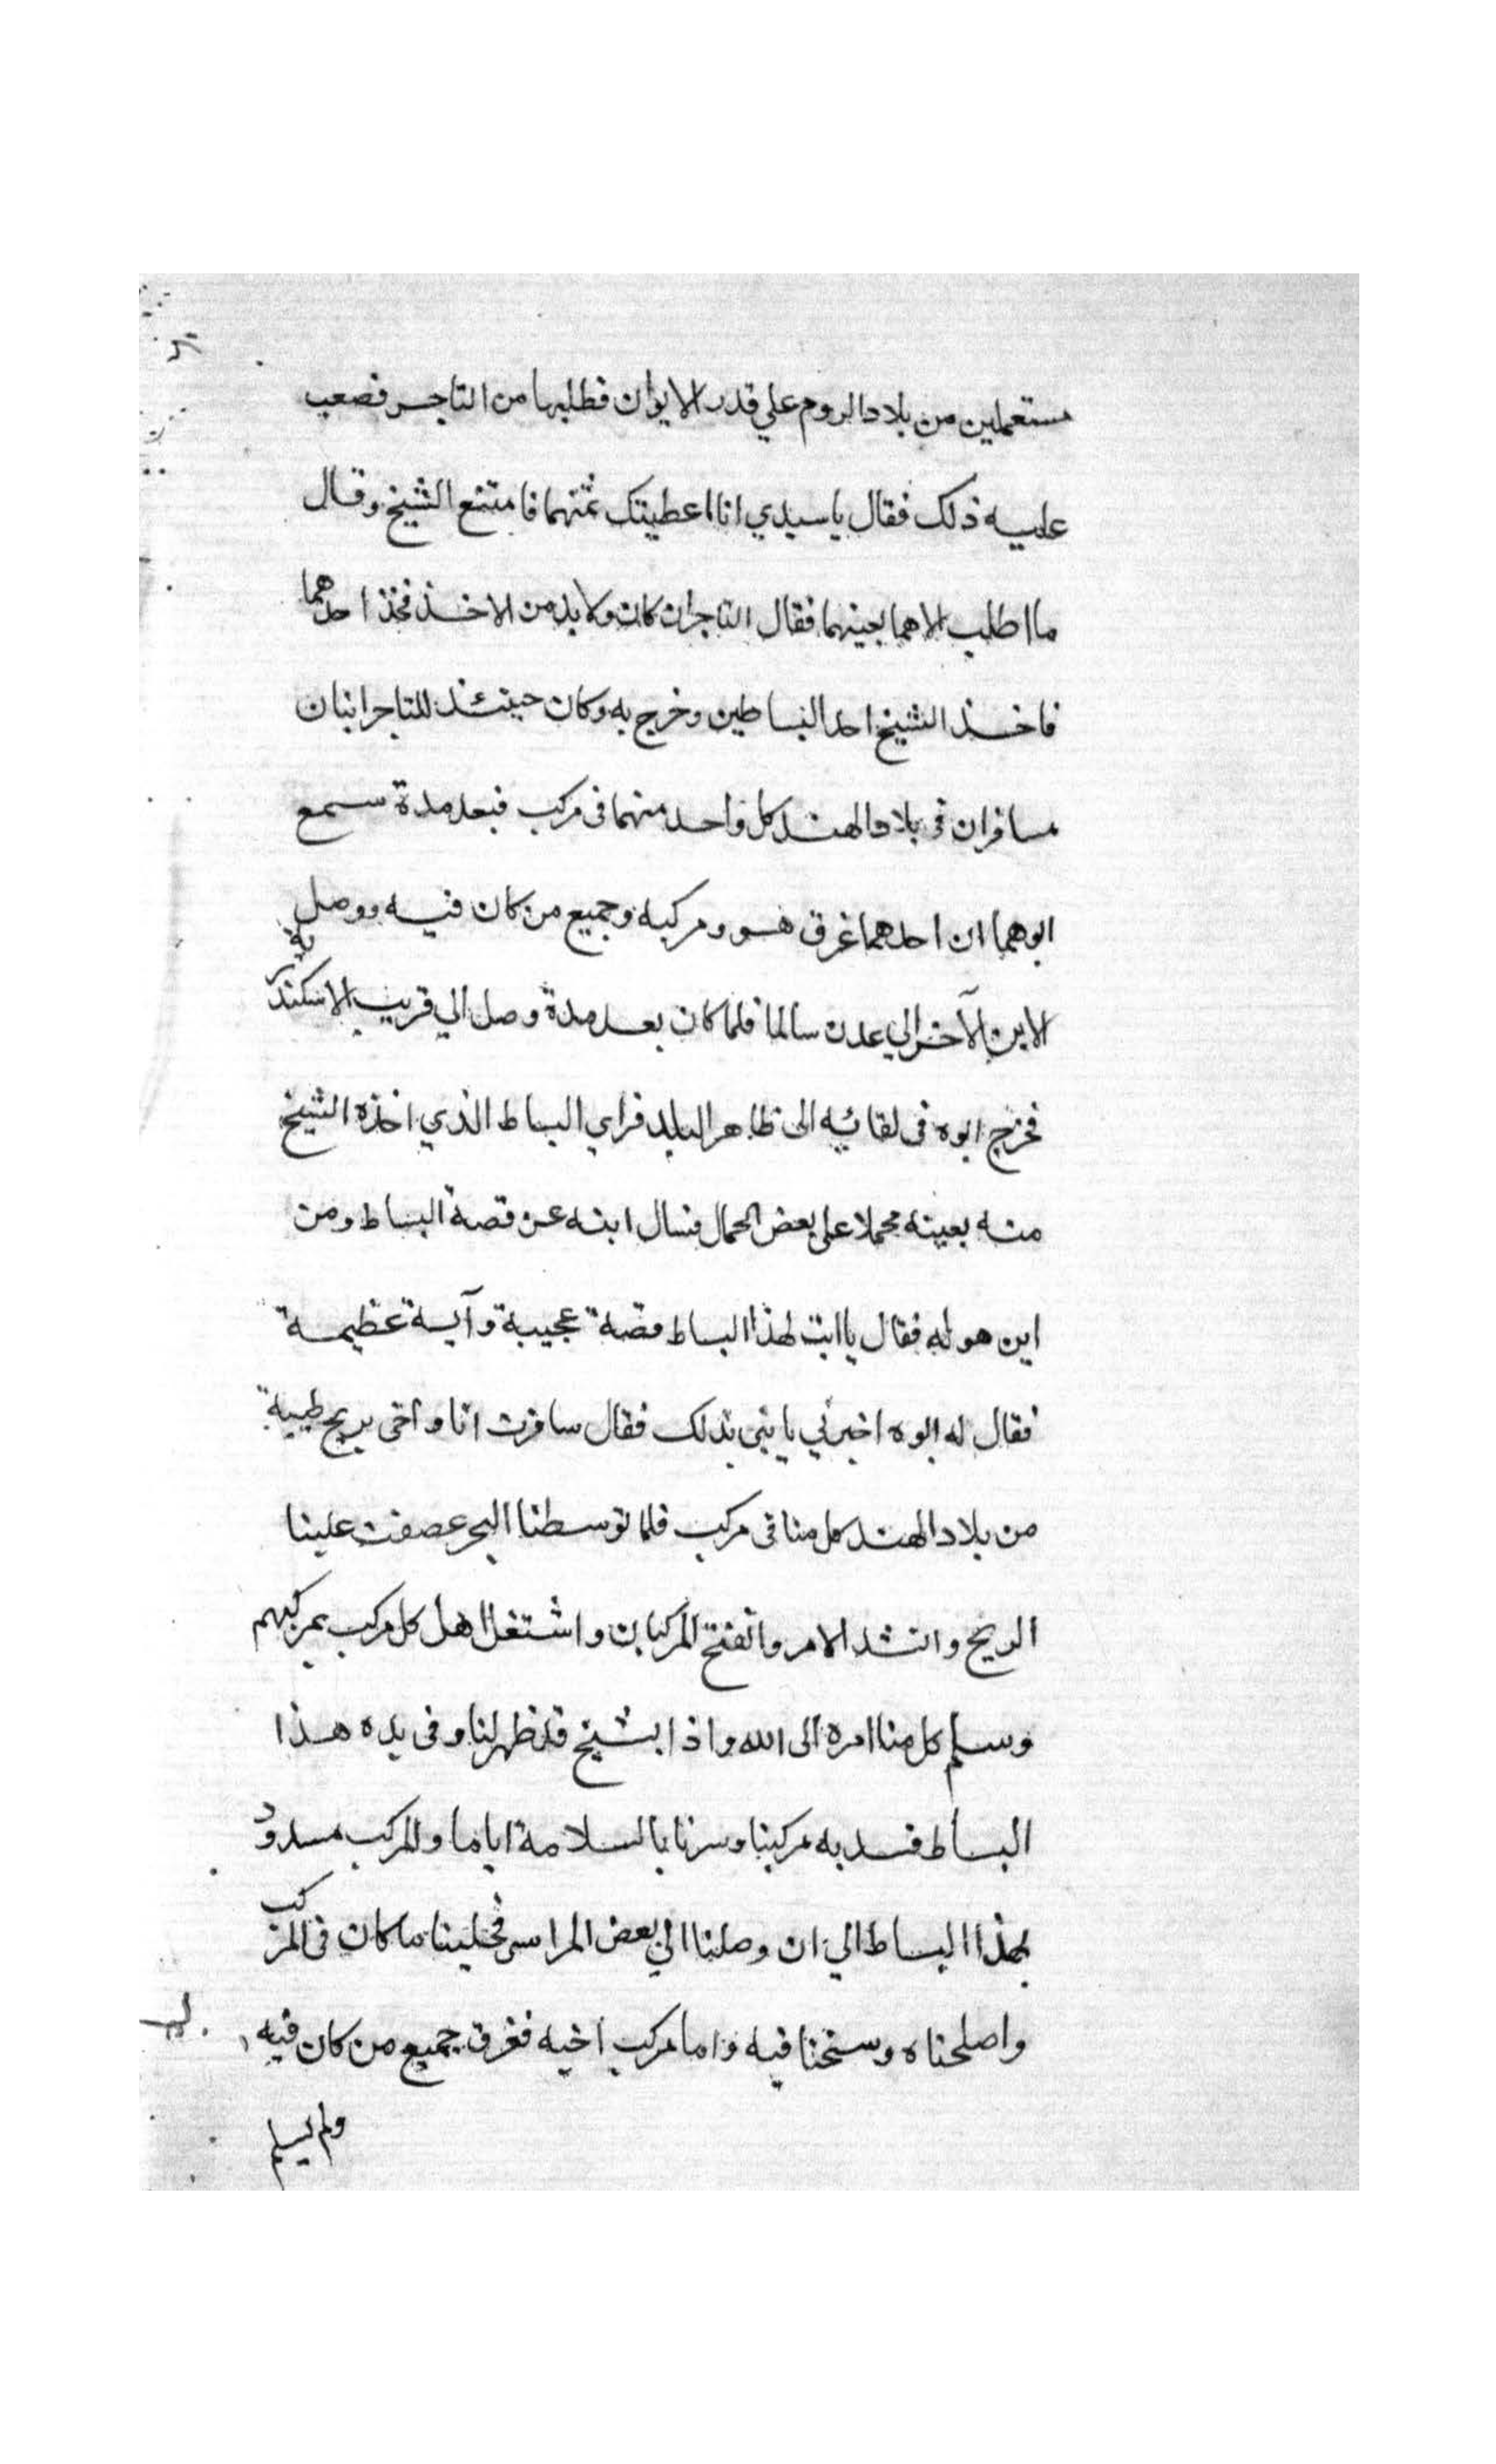 مستعملين من بلاد الروم علي قدر الايوان فطلبها من التاجر فصعب
عليه ذلك فقال يا سيدي انا اعطيتك ثمنهما فامتنع الشيخ وقال
ما اطلب الا هما بعينهما فقال التاجر ان كان ولا بد من الاخذ فخذ احدهما
فاخذ الشيخ احد البساطين وخرج به وكان حينئذ للتاجر ابنان
مسافران في بلاد الهند كل واحد منهما في مركب فبعد مدة سمع
ابوهما ان احدهما غرق هو ومركبه وجميع من كان فيه ووصل
الابن الآخر الي عدن سالما فلما كان بعد مدة وصل الي قريب الاسكندرية
فخرج ابوه في لقائه الى ظاهر البلد فراي البساط الذي اخذه الشيخ
منه بعينه محملا على بعض الجمال فسال ابنه عن قصة البساط ومن
اين هو له فقال يا ابت لهذا البساط قصة عجيبة وآية عظيمة
فقال له ابوه اخبرني يا بني بذلك فقال سافرت انا واخي بريح طيبة
من بلاد الهند كل منا في مركب فلما توسطنا البحر عصفت علينا
الريح واشتد الامر وانفتح المركبان واشتغل اهل كل مركب بمركبهم
وسلم كل منا امره الى الله واذا بشيخ قد ظهر لنا وفي يده هذا
البساط فسد به مركبنا وسرنا بالسلامة اياما والمركب مسدود
بهذا البساط الي ان وصلنا الي بعض المراسي فخلينا ما كان في المركب
واصلحناه وسنحنا فيه واما مركب اخيه فغرق جميع من كان فيه
ولم يسلم